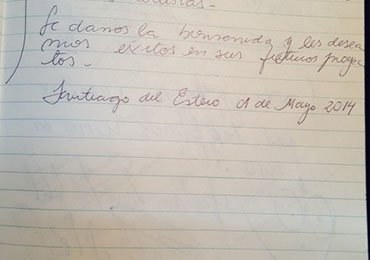 Se damos la bienvenida y les desea
mos exitos en sus futuros proyec
tos -
Santiago del Estero 01 de Mayo 2014